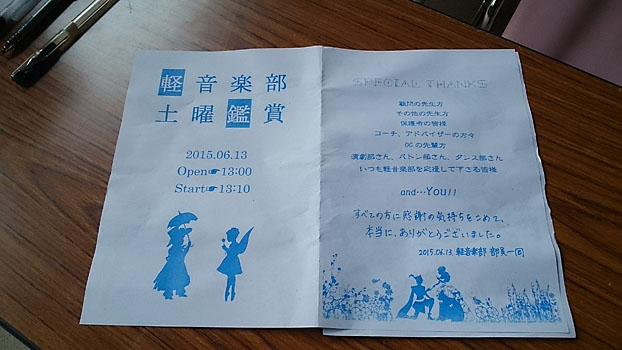 軽音楽部
土曜鑑賞
2015.06.13
Open☛13:00
Start☛13:10
SPECIAL THANKS
顧問の先生方
その他の先生方
保護者の皆様
コーチ、アドバイザーの方々
OGの先輩方
演劇部さん、バトン部さん、ダンス部さん
いつも軽音楽部を応援して下さる皆様
and…You!!
すべての方に感謝の気持ちをこめて、
本当に、ありがとうございました。
2015.06.13. 軽音楽部 部員一同